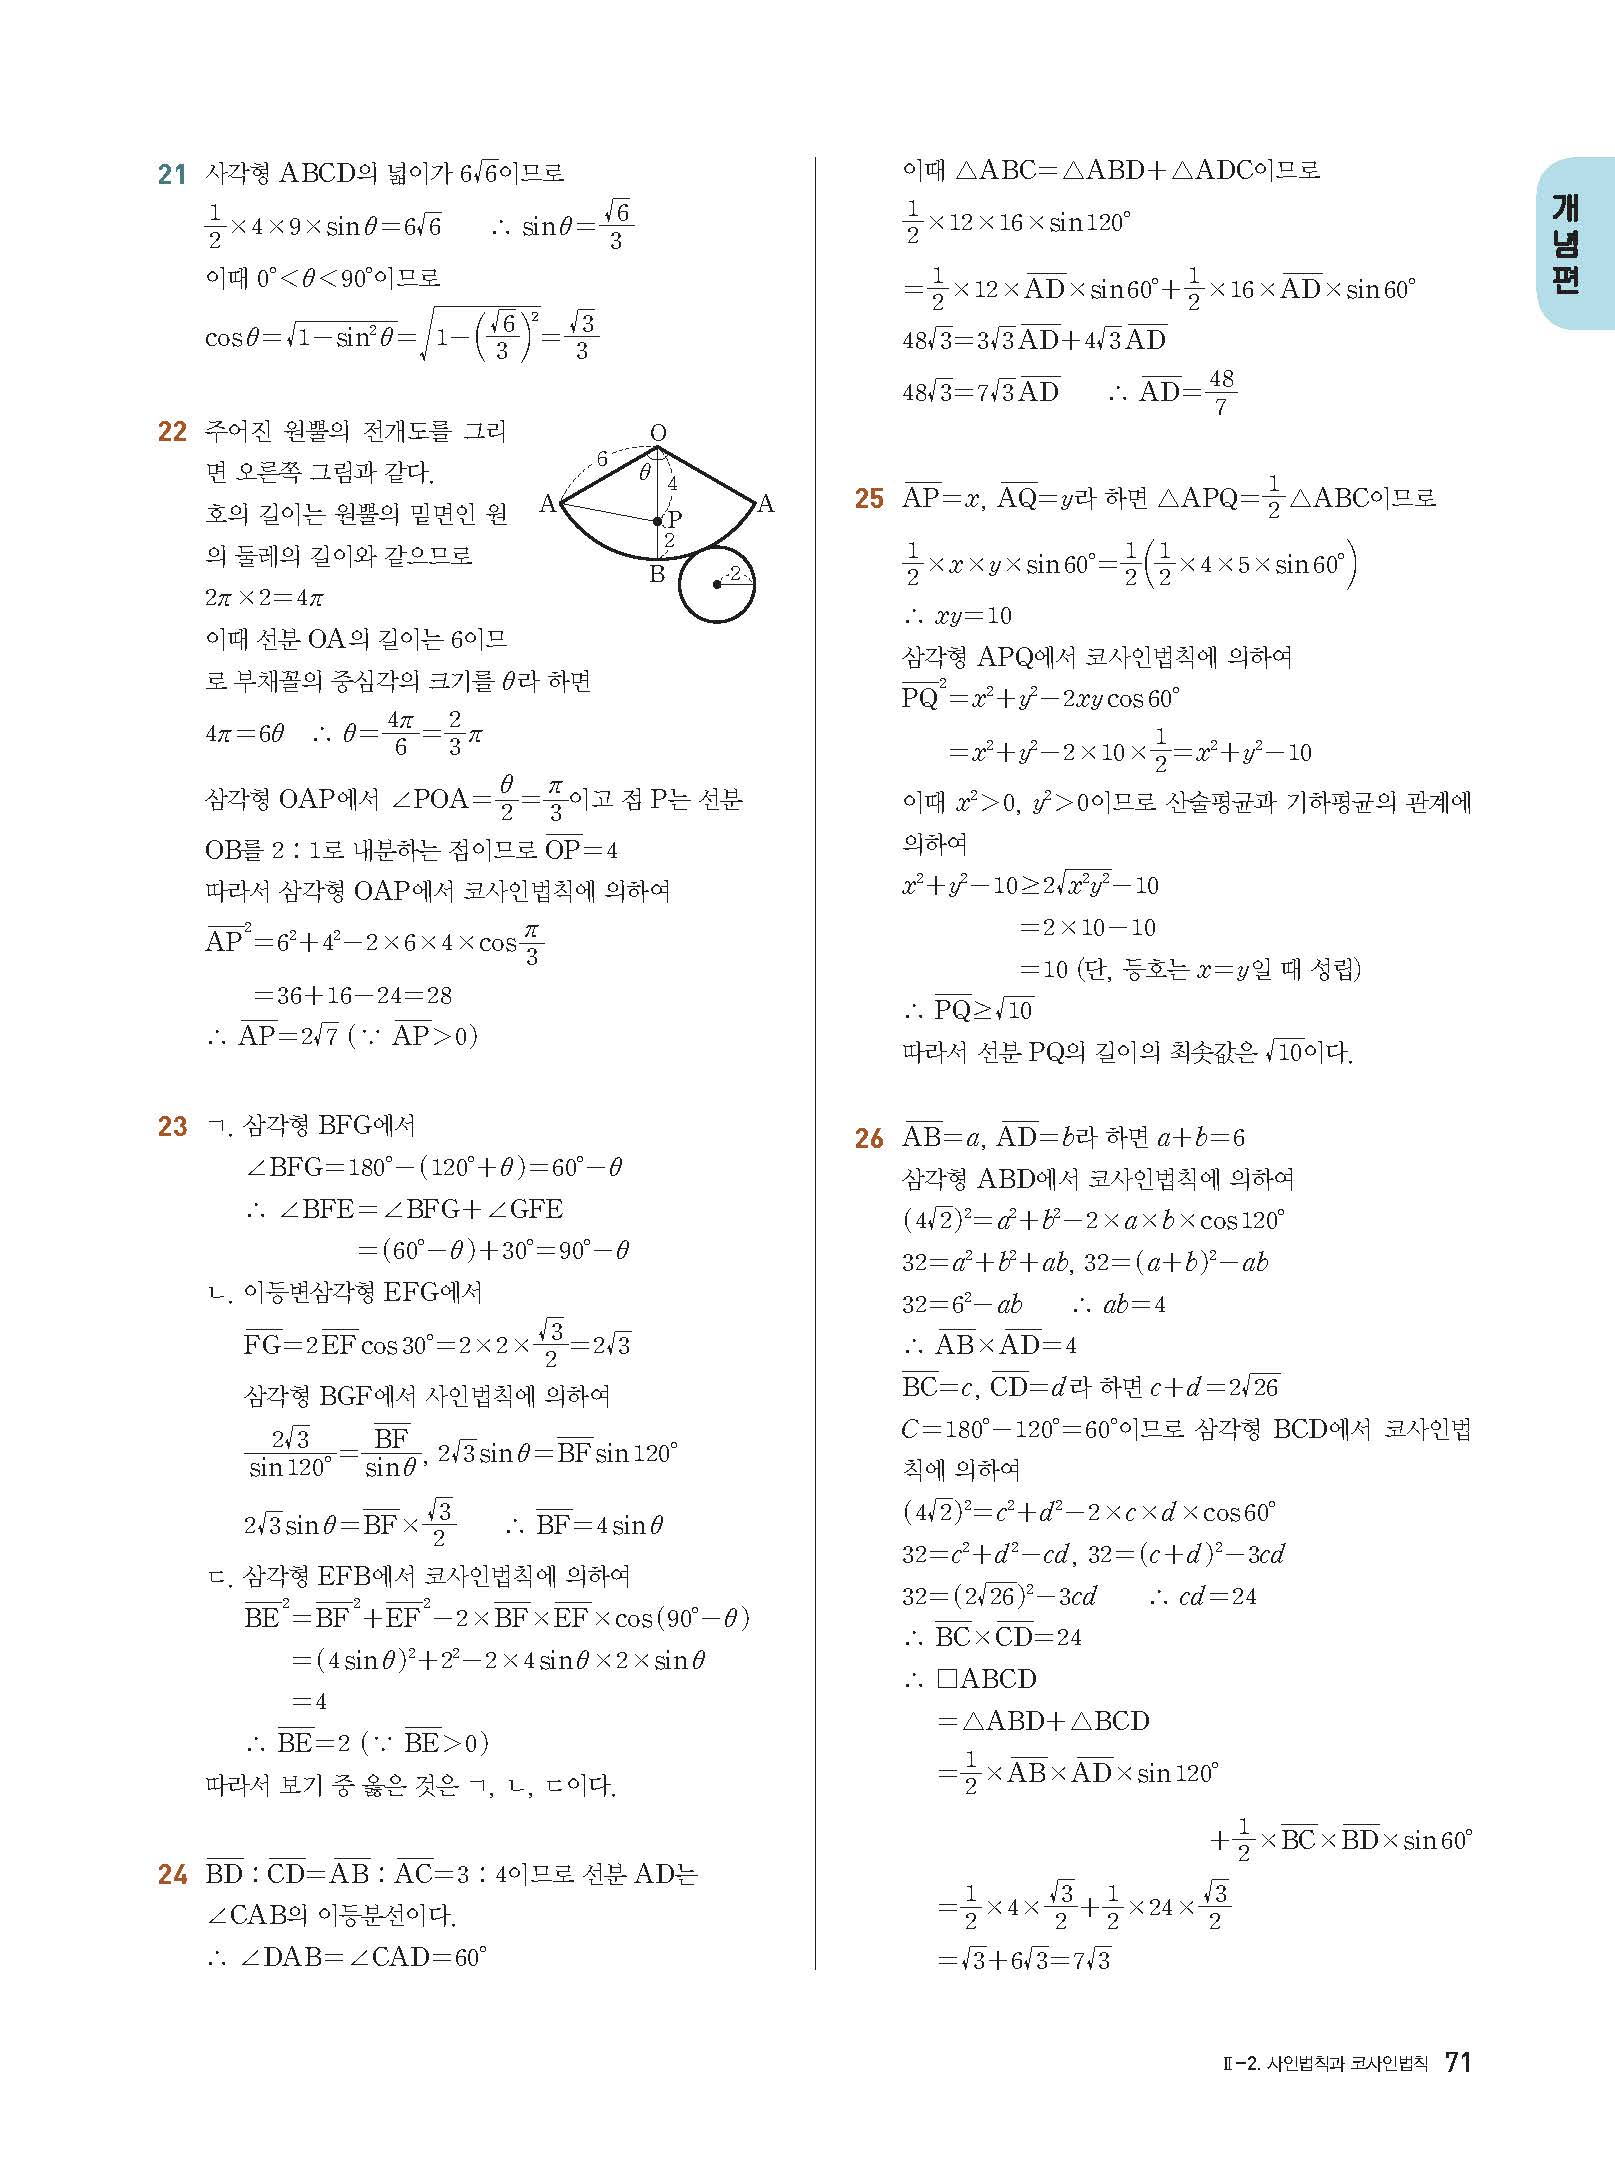 21 사각형 ABCD의 넓이가 6√6이므로
1/2×4×9×sinθ=6√6 ∴ sinθ=√6/3
이때 0°<θ<90°이므로
cosθ=√(1-sin²θ)=√(1-(√6/3)²)=√3/3
22 주어진 원뿔의 전개도를 그리
면 오른쪽 그림과 같다.
호의 길이는 원뿔의 밑면인 원
의 둘레의 길이와 같으므로
2π×2=4π
이때 선분 OA의 길이는 6이므
로 부채꼴의 중심각의 크기를 θ라 하면
O
6
θ
4
A
A
P
2
B
2
4π=6θ ∴ θ=4π/6=2/3π
삼각형 OAP에서 ∠POA=θ/2=π/3이고 점 P는 선분
OB를 2：1로 내분하는 점이므로 O̅P̅=4
따라서 삼각형 OAP에서 코사인법칙에 의하여
A̅P̅²=6²+4²-2×6×4×cosπ/3
=36+16-24=28
∴ A̅P̅=2√7 (∵ A̅P̅>0)
23 ㄱ. 삼각형 BFG에서
∠BFG=180°-(120°+θ)=60°-θ
∴ ∠BFE=∠BFG+∠GFE
=(60°-θ)+30°=90°-θ
ㄴ. 이등변삼각형 EFG에서
F̅G̅=2E̅F̅cos30°=2×2×√3/2=2√3
삼각형 BGF에서 사인법칙에 의하여
2√3/sin120°=B̅F̅/sinθ, 2√3sinθ=B̅F̅sin120°
2√3sinθ=B̅F̅×√3/2 ∴ B̅F̅=4sinθ
ㄷ. 삼각형 EFB에서 코사인법칙에 의하여
B̅E̅²=B̅F̅²+E̅F̅²-2×B̅F̅×E̅F̅×cos(90°-θ)
=(4sinθ)²+2²-2×4sinθ×2×sinθ
=4
∴ B̅E̅=2 (∵ B̅E̅>0)
따라서 보기 중 옳은 것은 ㄱ, ㄴ, ㄷ이다.
24 B̅D̅：C̅D̅=A̅B̅：A̅C̅=3：4이므로 선분 AD는
∠CAB의 이등분선이다.
∴ ∠DAB=∠CAD=60°
이때 △ABC=△ABD+△ADC이므로
1/2×12×16×sin120°
=1/2×12×A̅D̅×sin60°+1/2×16×A̅D̅×sin60°
48√3=3√3A̅D̅+4√3A̅D̅
48√3=7√3A̅D̅ ∴ A̅D̅=48/7
25 A̅P̅=x, A̅Q̅=y라 하면 △APQ=1/2△ABC이므로
1/2×x×y×sin60°=1/2(1/2×4×5×sin60°)
∴ xy=10
삼각형 APQ에서 코사인법칙에 의하여
P̅Q̅²=x²+y²-2xycos60°
=x²+y²-2×10×1/2=x²+y²-10
이때 x²>0, y²>0이므로 산술평균과 기하평균의 관계에
의하여
x²+y²-10≥2√(x²y²)-10
=2×10-10
=10 (단, 등호는 x=y일 때 성립)
∴ P̅Q̅≥√10
따라서 선분 PQ의 길이의 최솟값은 √10이다.
26 A̅B̅=a, A̅D̅=b라 하면 a+b=6
삼각형 ABD에서 코사인법칙에 의하여
(4√2)²=a²+b²-2×a×b×cos120°
32=a²+b²+ab, 32=(a+b)²-ab
32=6²-ab ∴ ab=4
∴ A̅B̅×A̅D̅=4
B̅C̅=c, C̅D̅=d라 하면 c+d=2√26
C=180°-120°=60°이므로 삼각형 BCD에서 코사인법
칙에 의하여
(4√2)²=c²+d²-2×c×d×cos60°
32=c²+d²-cd, 32=(c+d)²-3cd
32=(2√26)²-3cd ∴ cd=24
∴ B̅C̅×C̅D̅=24
∴ □ABCD
=△ABD+△BCD
=1/2×A̅B̅×A̅D̅×sin120°
+1/2×B̅C̅×B̅D̅×sin60°
=1/2×4×√3/2+1/2×24×√3/2
=√3+6√3=7√3
개념편
Ⅱ-2. 사인법칙과 코사인법칙 71